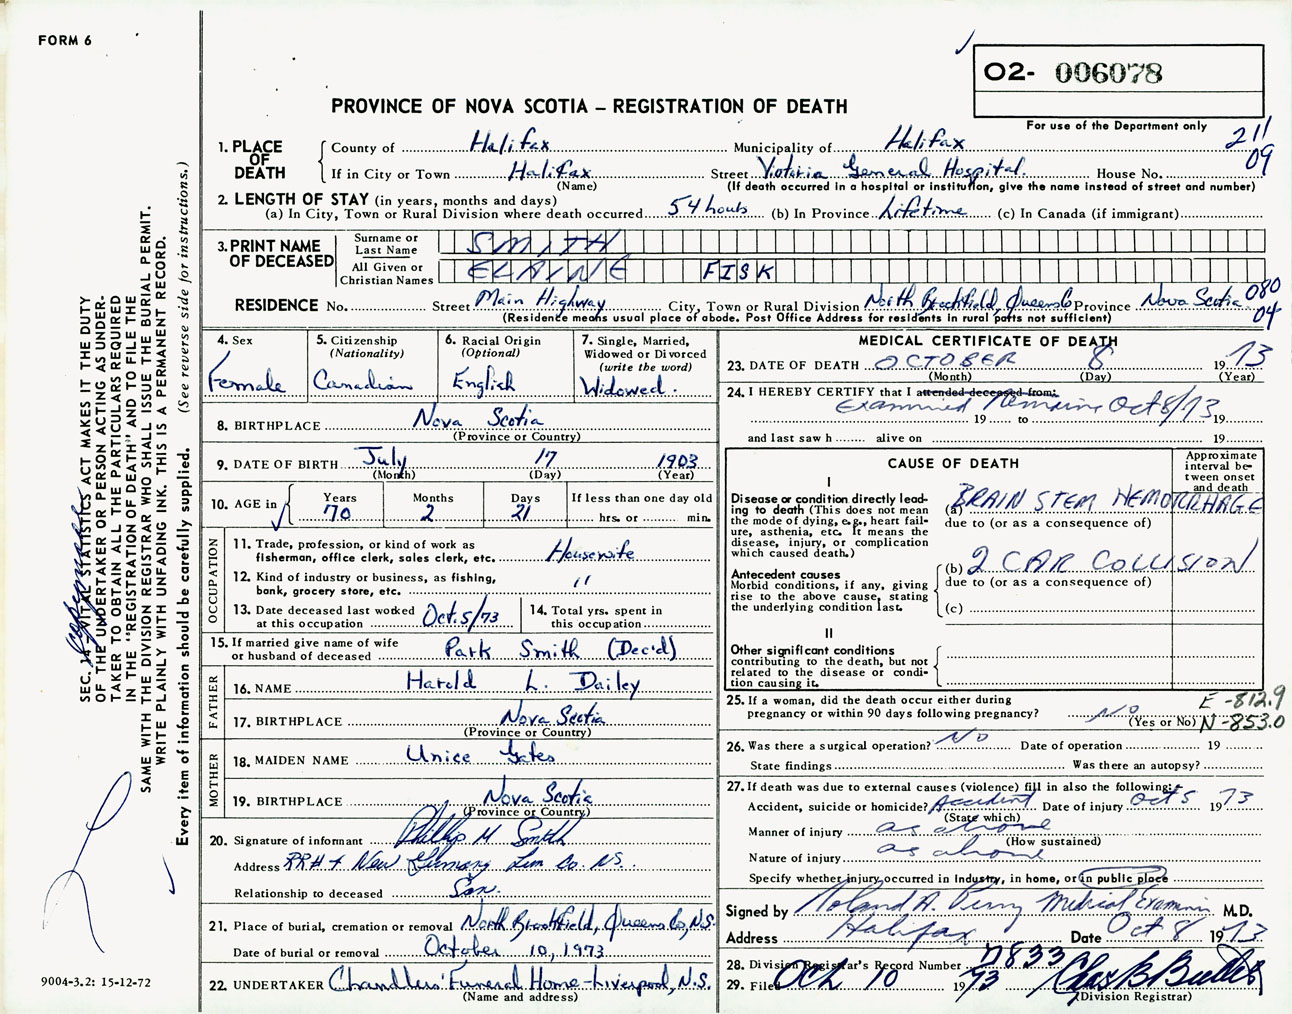 FORM 6
02- 006078
PROVINCE OF NOVA SCOTIA – REGISTRATION OF DEATH
For use of the Department only
211
09
1. PLACE OF DEATH
County of Halifax Municipality of Halifax
If in City or Town Halifax Street Victoria General Hospital House No.
(Name) (If death occurred in a hospital or institution, give the name instead of street and number)
2. LENGTH OF STAY (in years, months and days)
(a) In City, Town or Rural Division where death occurred 54 hours (b) In Province Lifetime (c) In Canada (if immigrant)
3. PRINT NAME OF DECEASED
Surname or Last Name SMITH
All Given or Christian Names ELAINE FISK
RESIDENCE No. Street Main Highway City, Town or Rural Division North Brookfield, Queens Co Province Nova Scotia 080
(Residence means usual place of abode. Post Office Address for residents in rural parts not sufficient) 04
4. Sex Female
5. Citizenship (Nationality) Canadian
6. Racial Origin (Optional) English
7. Single, Married, Widowed or Divorced (write the word) Widowed.
8. BIRTHPLACE Nova Scotia
(Province or Country)
9. DATE OF BIRTH July 17 1903
(Month) (Day) (Year)
10. AGE in Years 70 Months 2 Days 21 If less than one day old hrs. or min.
OCCUPATION
11. Trade, profession, or kind of work as fisherman, office clerk, sales clerk, etc. Housewife
12. Kind of industry or business, as fishing, bank, grocery store, etc. "
13. Date deceased last worked at this occupation Oct. 5/73
14. Total yrs. spent in this occupation
15. If married give name of wife or husband of deceased Park Smith (Dec'd)
FATHER
16. NAME Harold L. Dailey
17. BIRTHPLACE Nova Scotia
(Province or Country)
MOTHER
18. MAIDEN NAME Unice Gates
19. BIRTHPLACE Nova Scotia
(Province or Country)
20. Signature of informant Phillip M Smith
Address RR# 1 New Germany Lun Co. N.S.
Relationship to deceased Son.
21. Place of burial, cremation or removal North Brookfield, Queens Co, N.S.
Date of burial or removal October 10, 1973
22. UNDERTAKER Chandlers' Funeral Home - Liverpool, N.S.
(Name and address)
MEDICAL CERTIFICATE OF DEATH
23. DATE OF DEATH OCTOBER 8 1973
(Month) (Day) (Year)
24. I HEREBY CERTIFY that I attended deceased from:
Examined remains Oct 8/73
19 to 19
and last saw h alive on 19
CAUSE OF DEATH
Approximate interval between onset and death
I
Disease or condition directly leading to death (This does not mean the mode of dying, e.g., heart failure, asthenia, etc. It means the disease, injury, or complication which caused death.)
(a) BRAIN STEM HEMORRHAGE
due to (or as a consequence of)
Antecedent causes
Morbid conditions, if any, giving rise to the above cause, stating the underlying condition last.
(b) 2 CAR COLLISION
due to (or as a consequence of)
(c)
II
Other significant conditions contributing to the death, but not related to the disease or condition causing it.
25. If a woman, did the death occur either during pregnancy or within 90 days following pregnancy? No
(Yes or No)
E -812.9
N -853.0
26. Was there a surgical operation? No Date of operation 19
State findings Was there an autopsy?
27. If death was due to external causes (violence) fill in also the following:
Accident, suicide or homicide? Accident Date of injury Oct 5 1973
(State which)
Manner of injury as above
(How sustained)
Nature of injury as above
Specify whether injury occurred in Industry, in home, or in public place
Signed by Roland A. Perry Medical Examiner M.D.
Address Halifax Date Oct 8 1973
28. Division Registrar's Record Number 7833
29. Filed Oct 10 1973
(Division Registrar)
SEC. 14 – VITAL STATISTICS ACT MAKES IT THE DUTY
OF THE UNDERTAKER OR PERSON ACTING AS UNDERTAKER TO OBTAIN ALL THE PARTICULARS REQUIRED
IN THE "REGISTRATION OF DEATH" AND TO FILE THE
SAME WITH THE DIVISION REGISTRAR WHO SHALL ISSUE THE BURIAL PERMIT.
WRITE PLAINLY WITH UNFADING INK. THIS IS A PERMANENT RECORD.
Every item of information should be carefully supplied. (See reverse side for instructions.)
9004-3.2: 15-12-72